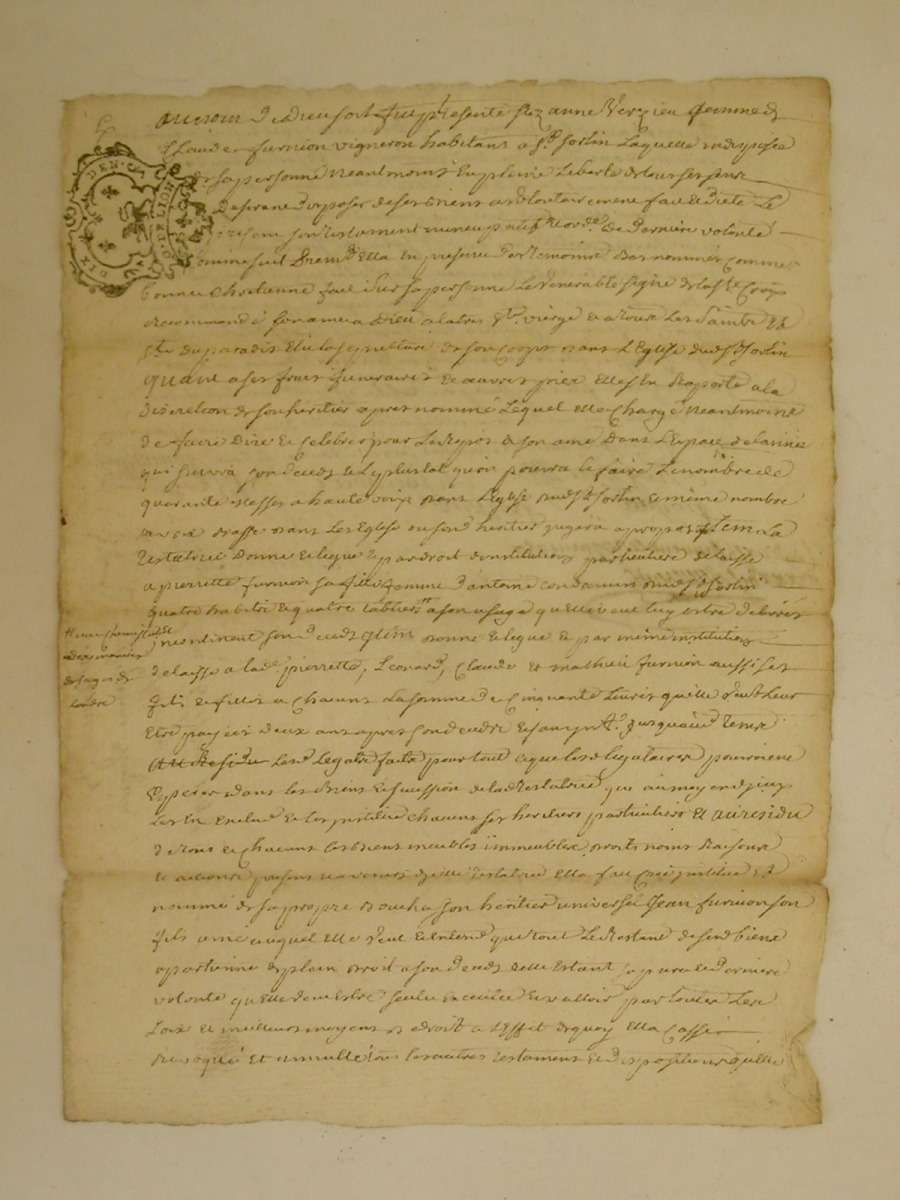 Au nom de Dieu soit fut presente sieze anne Verzieu femme de
Claude furnion vigneron habitant a St Sorlin Laquelle indisposée
de sa personne neantmoins en pleine Liberté de tous ses sens
Desirant disposer de ses biens a volontairement fait et dicté Le
present son testament nuncupatif et ord.e de derniere volonté
Comme suit Prem.t Ella en presence des temoins Bas nommés comme
bonne Chretienne fait sur sa personne Le venerable signe de la ste Croix
Recommandé son ame a Dieu a la tres ste vierge et a tous Les Saints et
stes du paradis Elu la sepulture de son Corps dans L'Eglise dud St Sorlin
quant a ses frais funeraires et œuvres pies Elle s'en Raporte a la
discretion de son heritier apres nommé Lequel Elle Charge Neantmoins
de faire Dire et Celebrer pour Le Repos de son ame dans L'Espace de l'année
qui suivra son deceds et Le plustot qu'on pourra le faire Le nombre de
quarante Messes a haute voix dans L'Eglise dud St Sorlin et même nombre
a voix basse dans Les Eglise ou sond heritier jugera a propos Item La
Testatrice Donne et legue et par droit d'institution particuliere delaisse
a pierrette furnion sa fille femme d'antoine Condamin dud St Sorlin
quatre habits et quatre tabliers # a son usage qu'elle veut luy estre delivrés
# une chemise et
deux
de
incontinent son deceds Item donne et legue et par même institution
delaisse a lad pierrette, Leonard, Claude et mathieu furnion aussi ses
fils et fille a Chacuns La somme de Cinquante Livres qu'elle veut Leur
Etre payées deux ans apres son deceds et sans jnt.s jusqu'aud terme
Au Residu Lesd Legats faits pour tout ce que lesd legataires pourroient
Esperer dans les Biens et succession de lad Testatrice qui au moyen d'jceux
Les En Exclud et Les institue chacuns ses heritiers particuliers et au residu
de tous et Chacuns les biens meubles immeubles droits noms Raisons
et actions presens et avenirs d'jcelle testatrice Ella fait Créé institué et
nommé de sa propre Bouche son heritier universel Jean furnion son
fils ainé auquel Elle veut et Entend que tout Le Restant de sesd biens
apartienne de plein droit a son deceds telle Estant sa pure et Derniere
volonté qu'Elle veut Estre seule executée et valloir par toutes Les
Loix et meilleurs moyens de droit a L'Effet de quoy Ella Cassé
Revoqué et annullé tous les autres testament et dispositions qu'elle